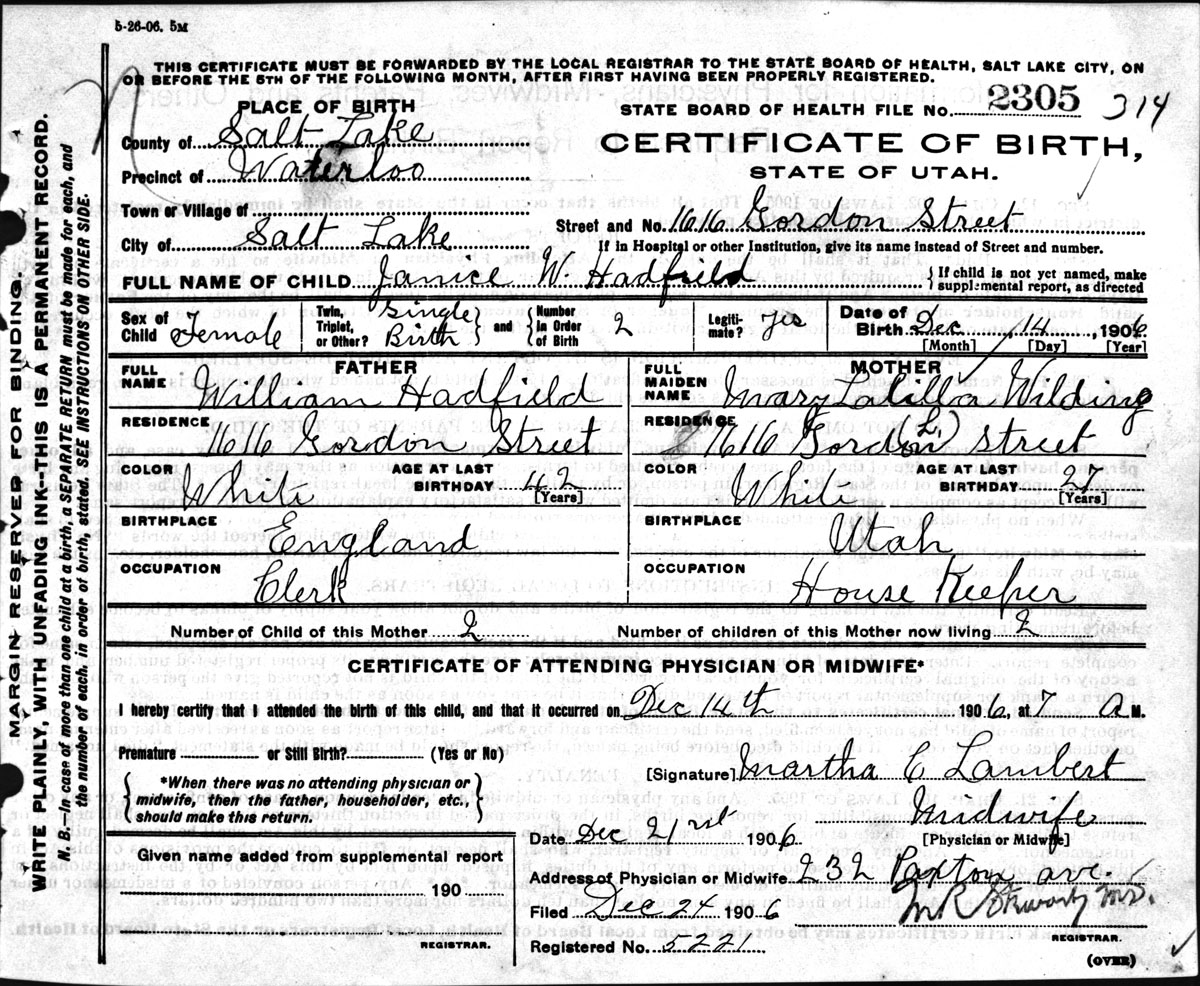 5-26-06. 5M
THIS CERTIFICATE MUST BE FORWARDED BY THE LOCAL REGISTRAR TO THE STATE BOARD OF HEALTH, SALT LAKE CITY, ON
OR BEFORE THE 5TH OF THE FOLLOWING MONTH, AFTER FIRST HAVING BEEN PROPERLY REGISTERED.
PLACE OF BIRTH
STATE BOARD OF HEALTH FILE NO. 2305 314
County of Salt Lake
CERTIFICATE OF BIRTH,
Precinct of Waterloo
STATE OF UTAH.
Town or Village of
Street and No. 1616 Gordon Street
City of Salt Lake
If in Hospital or other Institution, give its name instead of Street and number.
FULL NAME OF CHILD Janice W. Hadfield
{If child is not yet named, make
supplemental report, as directed
Sex of Child Female
Twin, Triplet, or Other? Single Birth
and {Number In Order of Birth 2
Legitimate? Yes
Date of Birth Dec 14, 1906
[Month] [Day] [Year]
FATHER
FULL NAME William Hadfield
RESIDENCE 1616 Gordon Street
COLOR White
AGE AT LAST BIRTHDAY 42
[Years]
BIRTHPLACE England
OCCUPATION Clerk
MOTHER
FULL MAIDEN NAME Mary Wilding
RESIDENCE 1616 Gordon Street
COLOR White
AGE AT LAST BIRTHDAY
[Years]
BIRTHPLACE Utah
OCCUPATION House Keeper
Number of Child of this Mother 2
Number of children of this Mother now living 2
CERTIFICATE OF ATTENDING PHYSICIAN OR MIDWIFE*
I hereby certify that I attended the birth of this child, and that it occurred on Dec 14th 1906, at 7 A M.
Premature or Still Birth? (Yes or No)
{*When there was no attending physician or
midwife, then the father, householder, etc.,
should make this return.}
[Signature] Martha E Lambert
Midwife
[Physician or Midwife]
Date Dec 21 1906
Given name added from supplemental report
190
REGISTRAR.
Address of Physician or Midwife 232 Paxton ave.
Filed Dec 24 1906
M.D.
REGISTRAR.
Registered No. 5221
(OVER)
MARGIN RESERVED FOR BINDING.
WRITE PLAINLY, WITH UNFADING INK-THIS IS A PERMANENT RECORD.
N. B.—In case of more than one child at a birth, a SEPARATE RETURN must be made for each, and
the number of each, in order of birth, stated. SEE INSTRUCTIONS ON OTHER SIDE.